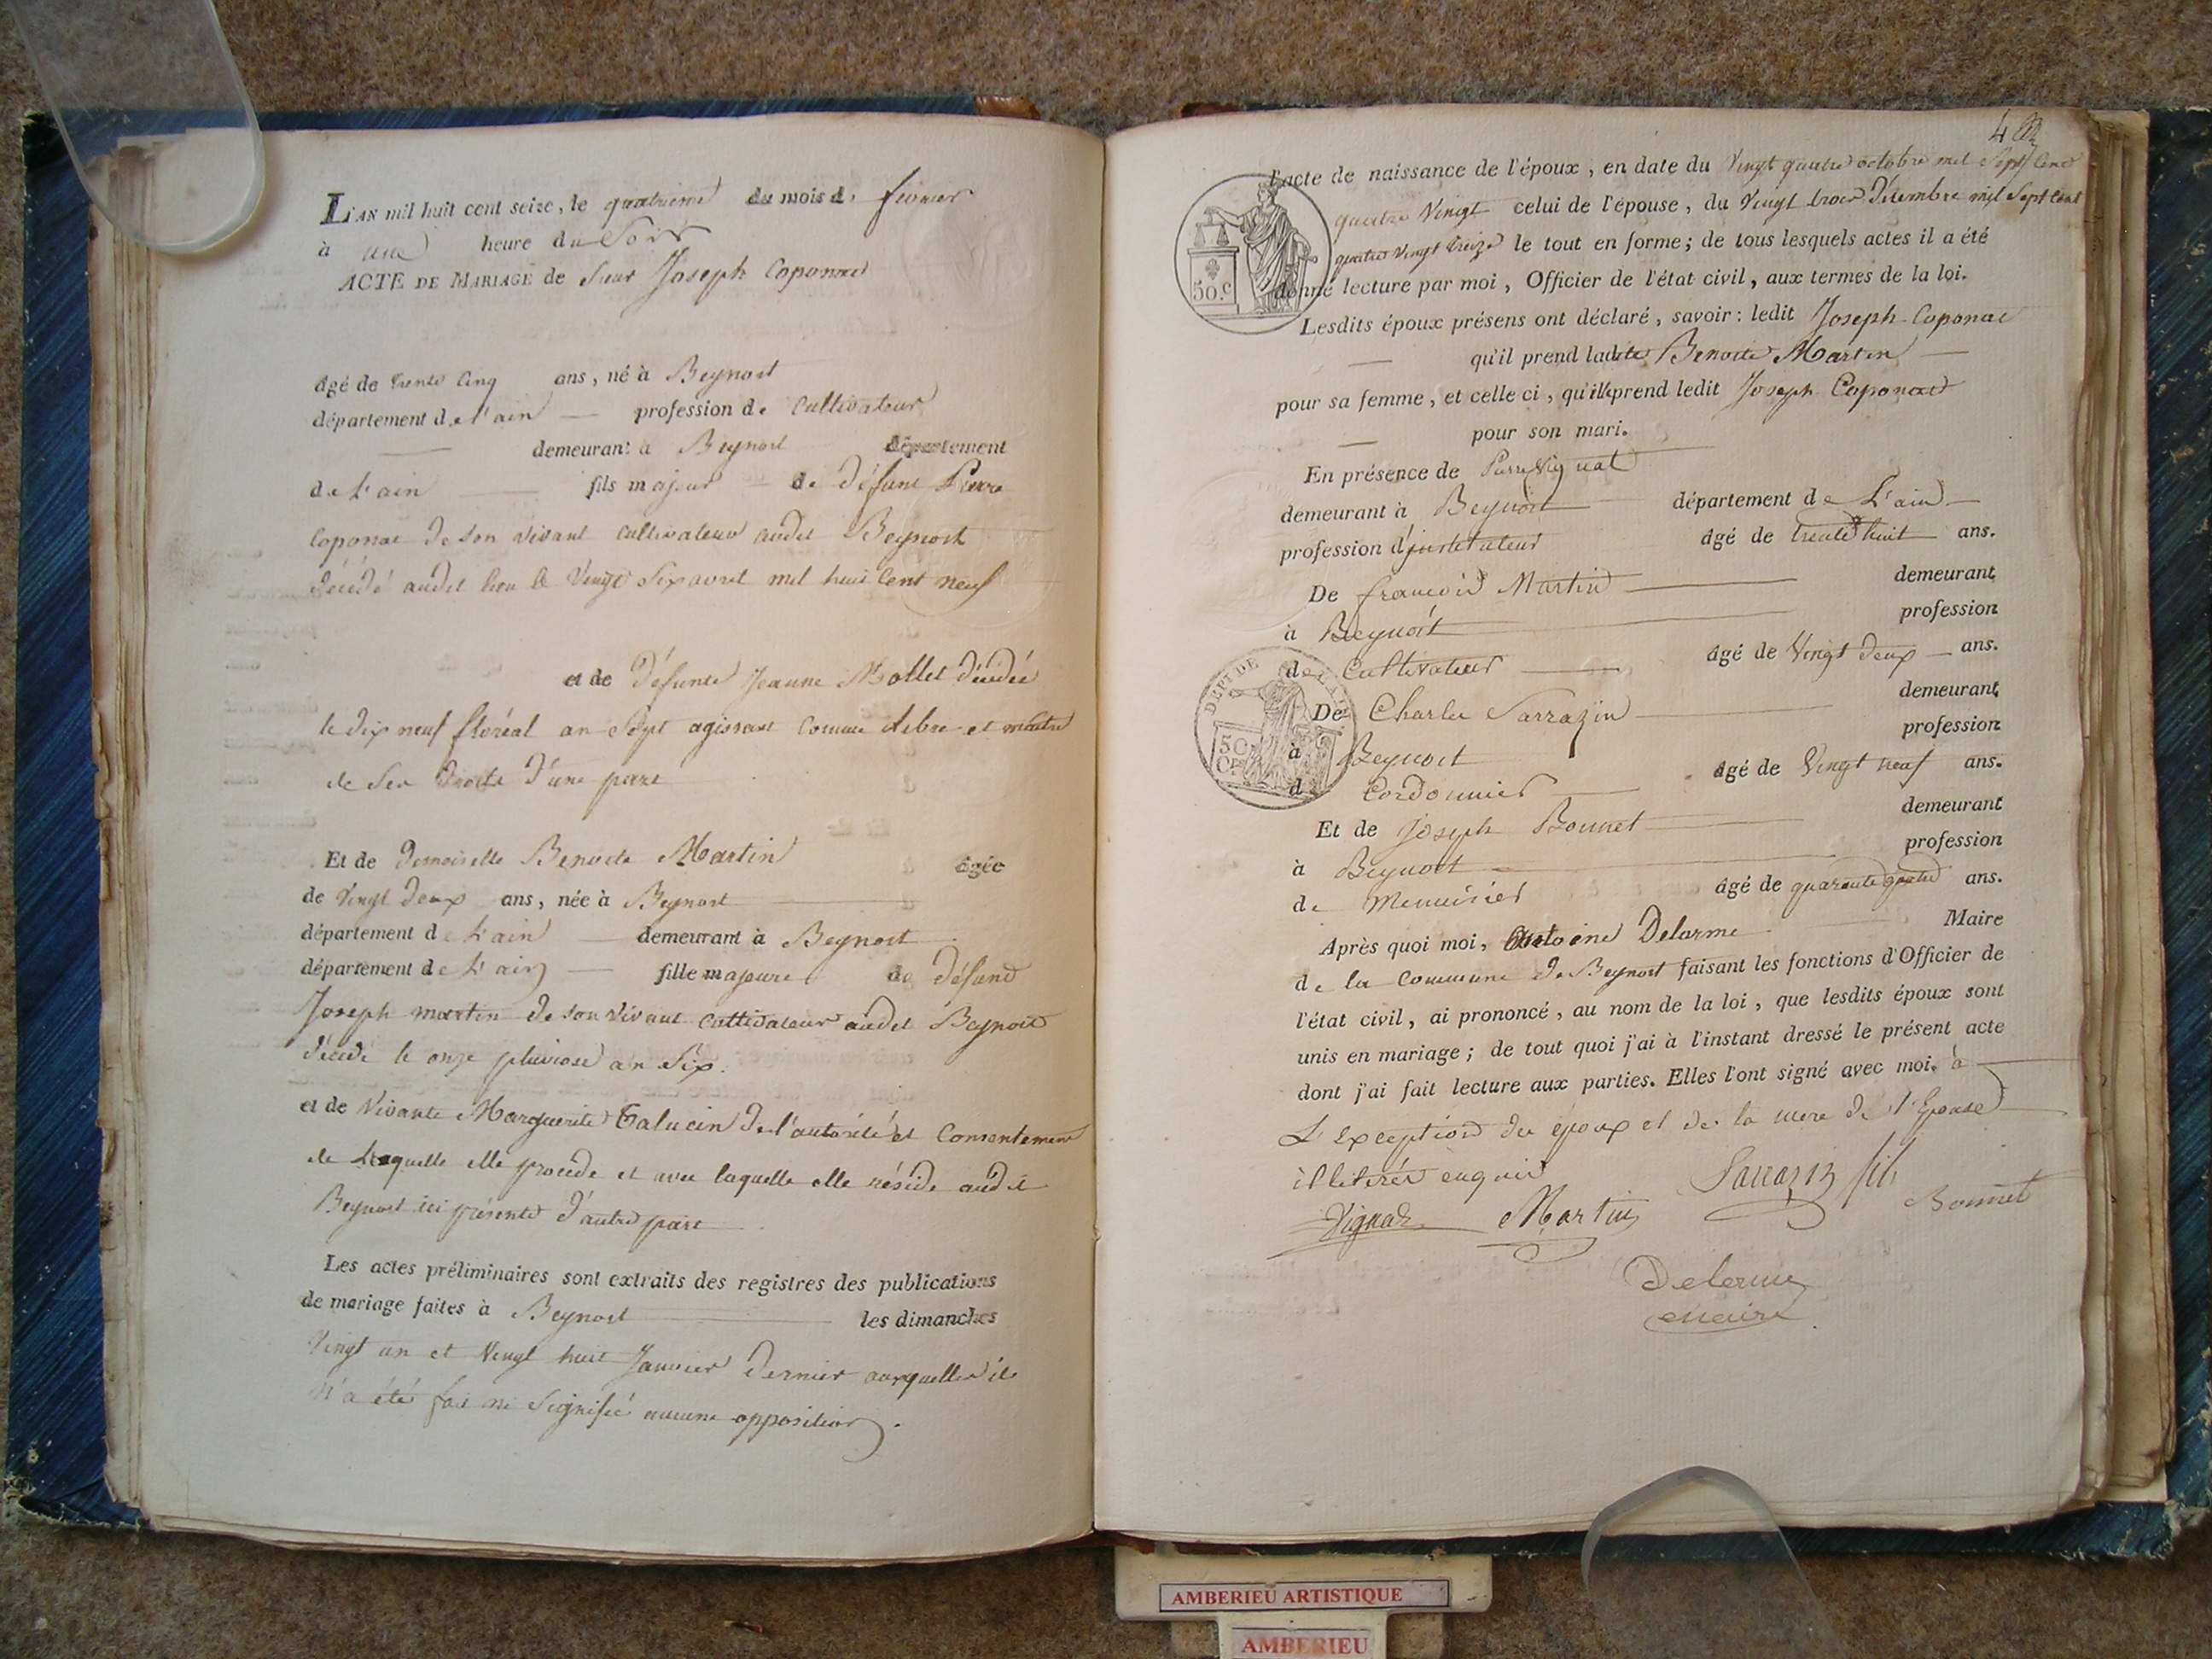 L'AN mil huit cent seize, le quatrieme du mois de fevrier
à une heure du Soir
ACTE DE MARIAGE de Sieur Joseph Coponat
âgé de trente cinq ans, né à Beynost
département de l'ain profession de Cultivateur
demeurant à Beynost département
de L'ain fils majeur de défunt Pierre
Coponat de son vivant cultivateur audit Beynost
décédé audit lieu le Vingt Six avril mil huit Cent neuf
et de défunte Jeanne Mollet décédée
le dix neuf floréal an Sept agissant comme libre et maitre
de ses Droits d'une part
Et de Demoiselle Benoite Martin âgée
de Vingt deux ans, née à Beynost
département de L'ain demeurant à Beynost
département de L'ain fille majeure de défunt
Joseph martin de son vivant cultivateur audit Beynost
décédé le onze pluviose an Six.
et de Vivante Marguerite Talucin de l'autorité et Consentement
de Laquelle elle procede et avec laquelle elle réside audit
Beynost ici présente d'autre part
Les actes préliminaires sont extraits des registres des publications
de mariage faites à Beynost les dimanches
Vingt un et Vingt huit Janvier dernier auxquelles il
n'a été fait ni Signifié aucune opposition.
4
l'acte de naissance de l'époux, en date du Vingt quatre octobre mil Sept Cent
quatre Vingt celui de l'épouse, du Vingt trois décembre mil Sept Cent
quatre Vingt treize le tout en forme; de tous lesquels actes il a été
donné lecture par moi, Officier de l'état civil, aux termes de la loi.
50.c
Lesdits époux présens ont déclaré, savoir: ledit Joseph Coponat
qu'il prend ladite Benoite Martin
pour sa femme, et celle ci, qu'elle prend ledit Joseph Coponat
pour son mari.
En présence de Pierre Vignat
demeurant à Beynost département de L'ain
profession d'instituteur âgé de trente huit ans.
De francois Martin demeurant
à Beynost profession
de Cultivateur âgé de Vingt deux ans.
DEPT DE L'AIN
De Charles Sarrazin demeurant
à Beynost profession
50 Cen
de Cordonnier âgé de Vingt neuf ans.
Et de Joseph Bonnet demeurant
à Beynost profession
de Menuisier âgé de quarante quatre ans.
Après quoi moi, Antoine Delorme Maire
de la Commune de Beynost faisant les fonctions d'Officier de
l'état civil, ai prononcé, au nom de la loi, que lesdits époux sont
unis en mariage; de tout quoi j'ai à l'instant dressé le présent acte
dont j'ai fait lecture aux parties. Elles l'ont signé avec moi. à
L'Exception des époux et de la mere de l'Epouse
illetirés enquis
Vignat Martin Sarrazin fils Bonnet
Delorme
Maire
AMBERIEU ARTISTIQUE
AMBERIEU